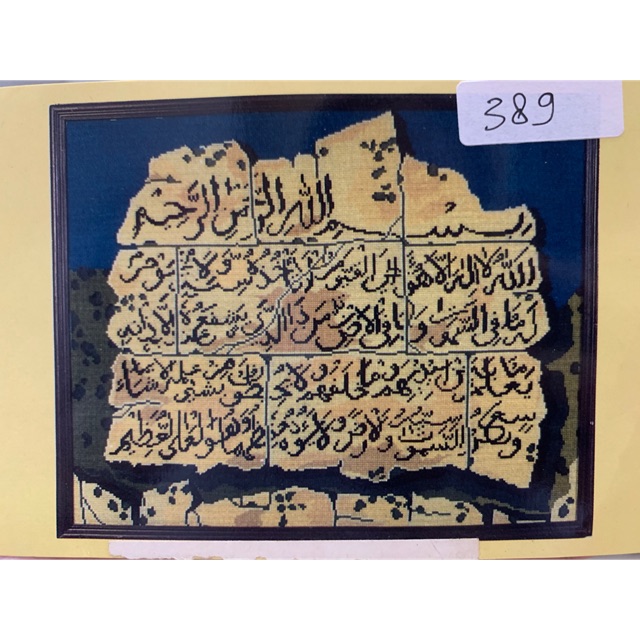 389
بسم الله الرحمن الرحيم
الله لا اله الا هو الحي القيوم لا تأخذه سنة ولا نوم
له ما في السموات وما في الارض من ذا الذي يشفع عنده الا باذنه
يعلم ما بين ايديهم وما خلفهم ولا يحيطون بشيء من علمه الا بما شاء
وسع كرسيه السموات والارض ولا يؤده حفظهما وهو العلي العظيم